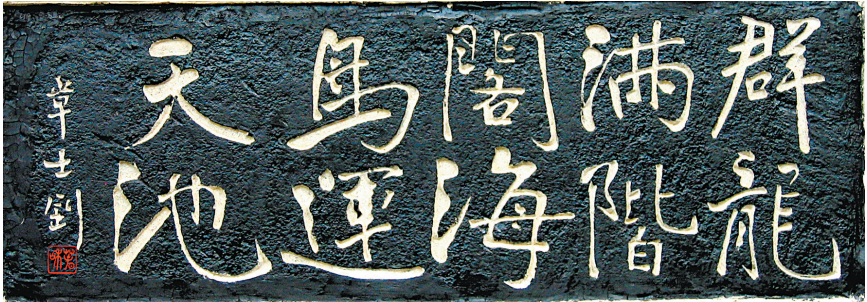 群龍
滿階
閣海
鳥運
天池
章士釗